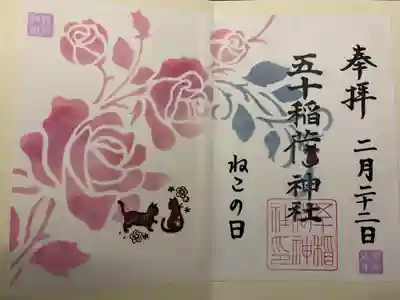 奉拝
二月二十二日
五十稲荷神社
ねこの日